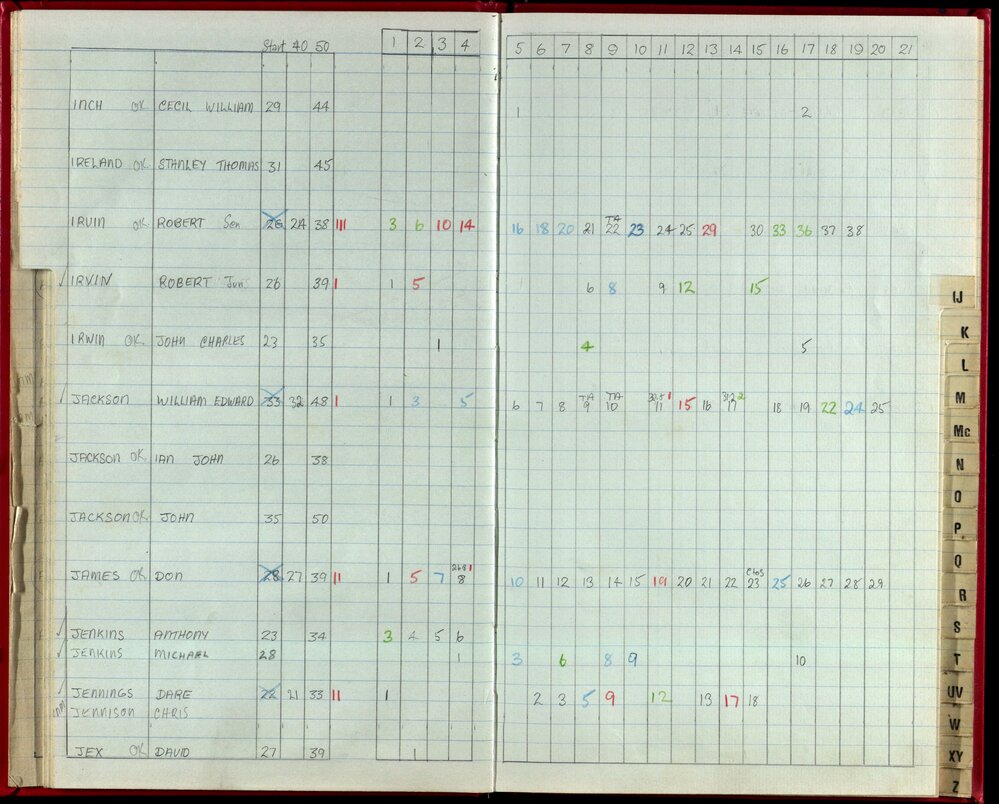 Start 40 50 1 2 3 4 5 6 7 8 9 10 11 12 13 14 15 16 17 18 19 20 21
INCH OK CECIL WILLIAM 29 44 1 2
IRELAND OK. STANLEY THOMAS 31 45
IRVIN OK. ROBERT Sen 26 24 38 III 3 6 10 14 16 18 20 21 TA 22 23 24 25 29 30 33 36 37 38
✓ IRVIN ROBERT Jun 26 39 I 1 5 6 8 9 12 15
IRWIN OK. JOHN CHARLES 23 35 1 4 5
✓ JACKSON WILLIAM EDWARD 33 32 48 I 1 3 5 6 7 8 TA 9 TA 10 11 15 16 17 18 19 22 24 25
JACKSON OK. IAN JOHN 26 38
JACKSON OK. JOHN 35 50
JAMES OK DON 28 27 39 II 1 5 7 8 10 11 12 13 14 15 19 20 21 22 23 25 26 27 28 29
✓ JENKINS ANTHONY 23 34 3 4 5 6
✓ JENKINS MICHAEL 28 1 3 6 8 9 10
✓ JENNINGS DARE 22 21 33 II 1 2 3 5 9 12 13 17 18
JENNISON CHRIS
JEX OK DAVID 27 39 1
IJ
K
L
M
Mc
N
O
P
Q
R
S
T
UV
W
XY
Z